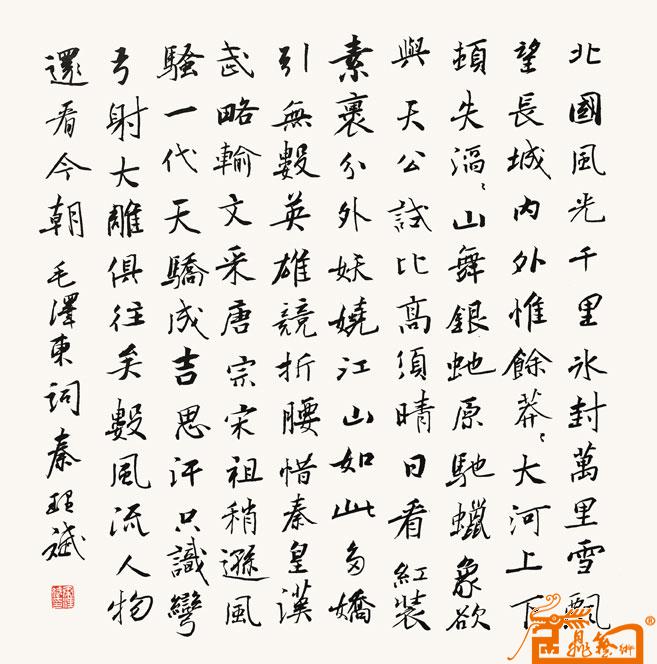 北國風光千里冰封萬里雪飄
望長城內外惟餘莽〻大河上下
頓失滔〻山舞銀虵原馳蠟象欲
與天公試比高須晴日看紅装
素裹分外妖嬈江山如此多嬌
引無數英雄競折腰惜秦皇漢
武略輸文采唐宗宋祖稍遜風
騷一代天驕成吉思汗只識彎
弓射大雕俱往矣數風流人物
還看今朝毛澤東詞秦